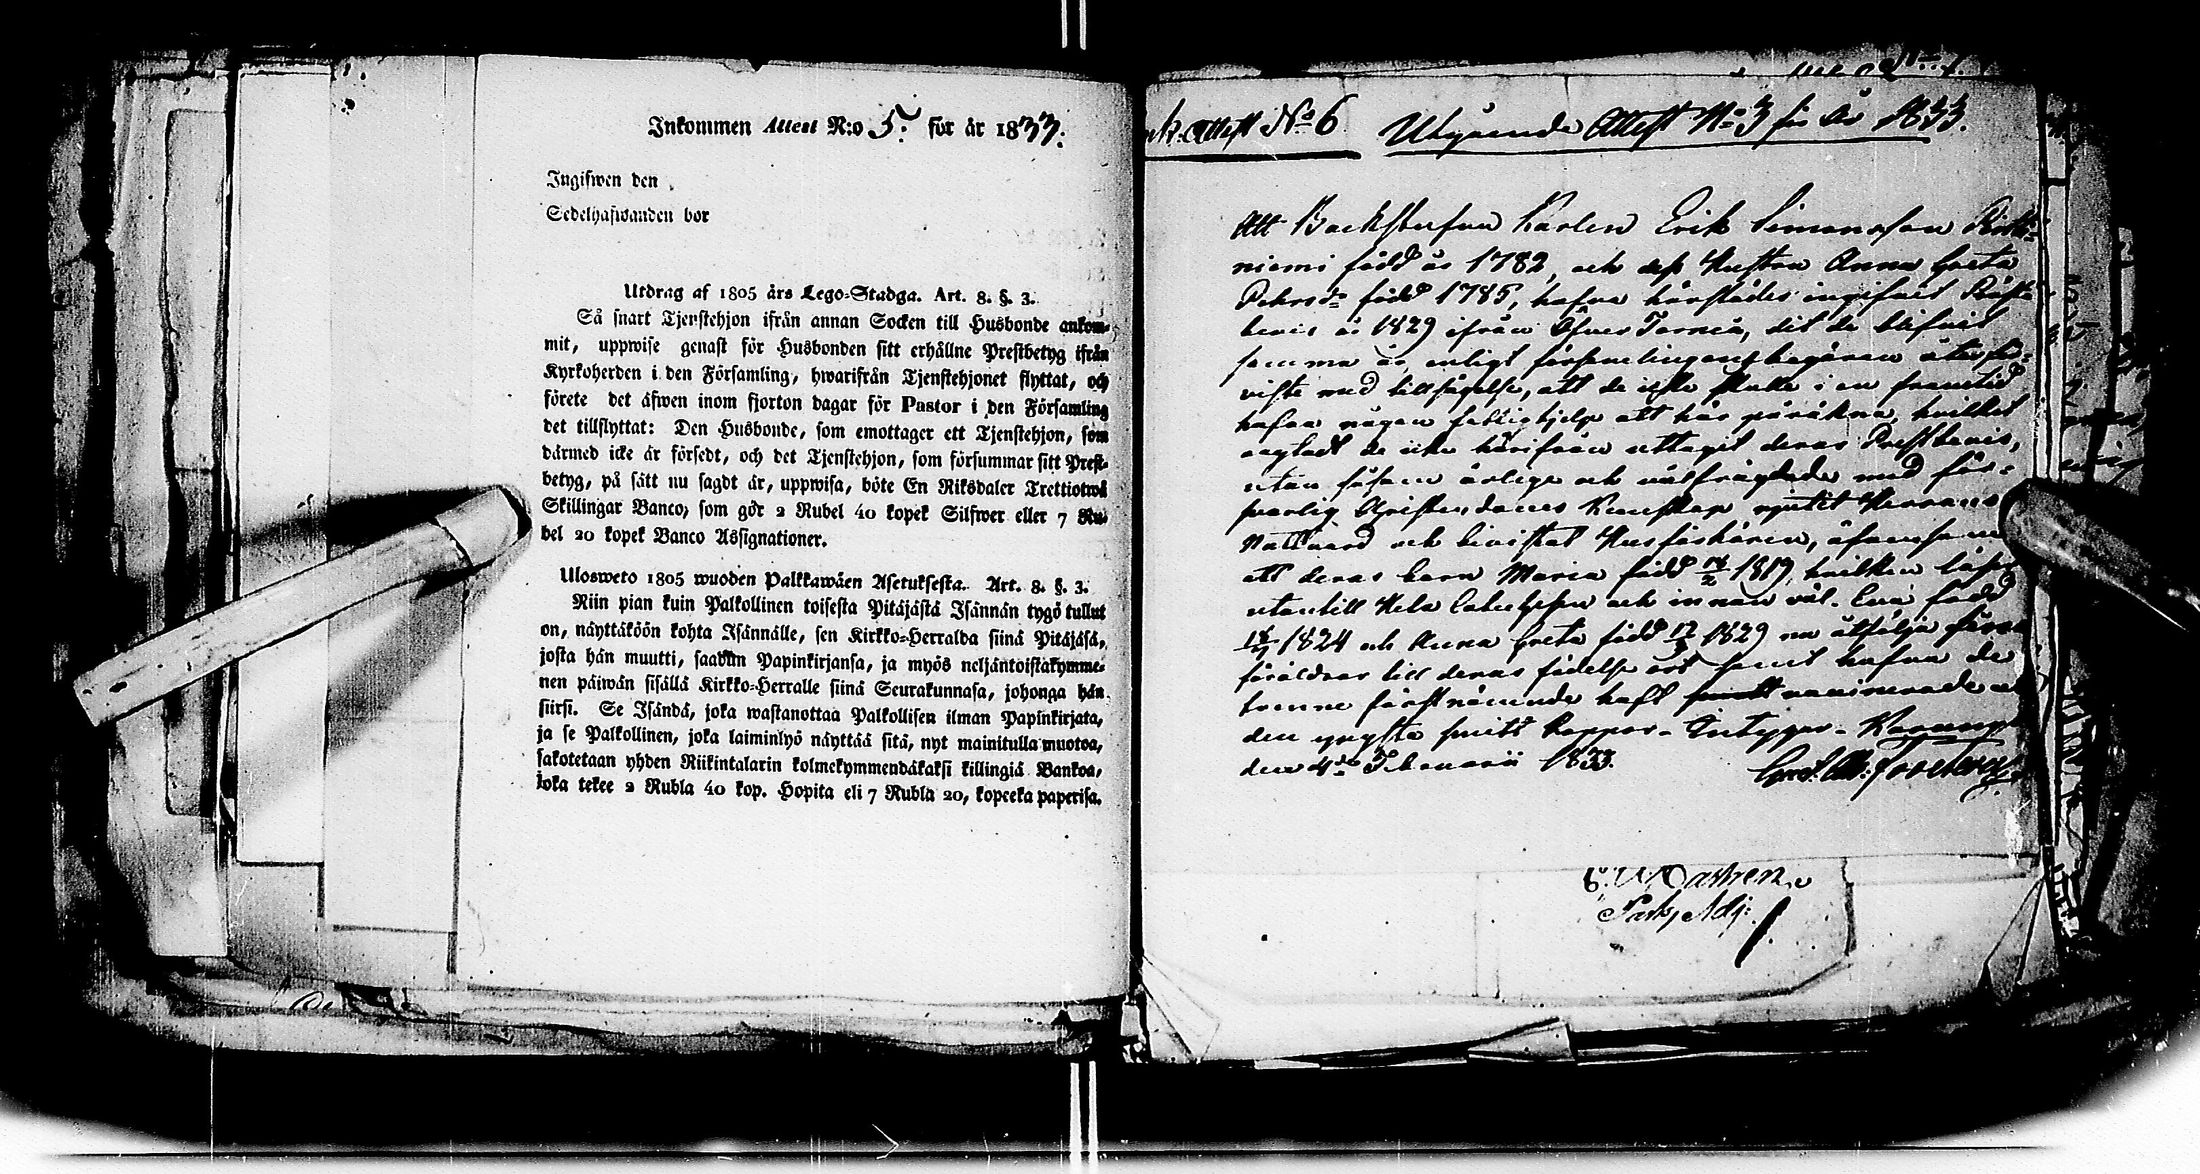 Inkommen Attest N:o 5. för år 1833.
Ingifwen den
Sedelhafwanden bor
Utdrag af 1805 års Lego-Stadga. Art. 8. §. 3.
Så snart Tjenstehjon ifrån annan Socken till Husbonde ankom-
mit, uppwise genast för Husbonden sitt erhållne Prestbetyg ifrån
Kyrkoherden i den Församling, hwarifrån Tjenstehjonet flyttat, och
förete det äfwen inom fjorton dagar för Pastor i den Församling
det tillflyttat: Den Husbonde, som emottager ett Tjenstehjon, som
därmed icke är försedt, och det Tjenstehjon, som försummar sitt Prest-
betyg, på sätt nu sagdt är, uppwisa, böte En Riksdaler Trettiotwå
Skillingar Banco, som gör 2 Rubel 40 kopek Silfwer eller 7 Ru-
bel 20 kopek Banco Assignationer.
Ulosweto 1805 wuoden Palkkawäen Asetuksesta. Art. 8. §. 3.
Niin pian kuin Palkollinen toisesta Pitäjästä Isännän tygö tullut
on, näyttäköön kohta Isännälle, sen Kirkko-Herralda siinä Pitäjäsä,
josta hän muutti, saadun Papinkirjansa, ja myös neljäntoistakymme-
nen päiwän sisällä Kirkko-Herralle siinä Seurakunnasa, johonga hän
siirsi. Se Isändä, joka wastanottaa Palkollisen ilman Papinkirjata,
ja se Palkollinen, joka laiminlyö näyttää sitä, nyt mainitulla muotoa,
sakotetaan yhden Riikintalarin kolmekymmendäkaksi killingiä Bankoa,
joka tekee 2 Rubla 40 kop. Hopita eli 7 Rubla 20, kopeeka paperisa.
Attest No 6 Utgående Attest No 3 för År 1833.
Att Backstufvu Karlen Erik Simonsson
niemi född år 1782, och dess Hustru Anna Greta
Pehrsdr född 1785, hafva härstädes ingifvit Präste
bevis år 1829 ifrån Öfver Torneå, dit de blifvit
samma år enligt församlingens begäran återför-
viste med tillsägelse, att de icke skulle i en framtid
hafva någon fattighjelp att här påräkna, hvilket
de icke härifrån uttagit deras Prestbevis,
utan såsom ärlige och välfrägdade med för-
svarlig Christendoms Kunskap njutit Herrans
Nattvard och bivistat Husförhören, äfvensom
att deras barn Maria född 1819, hvilken läser
utantill Hela och innan väl. Eva född
1824 och Anna Greta född 1829 nu åtfölja
föräldrar till deras födelse ort samt hafva de
tvenne förstnämnde haft vaccinerade
den yngsta Koppor. Intygar. Karungi
den 4de Februarii 1833.
Castren
Past. Adj: